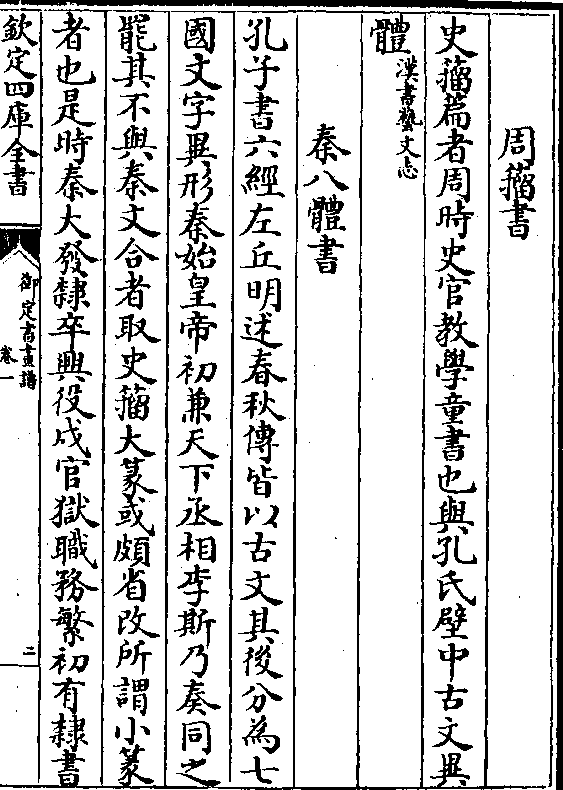 周籕書
史籕篇者周時史官教學童書也與孔氏壁中古文異
體漢書藝文志
秦八體書
孔子書六經左丘明述春秋傳皆以古文其後分為七
國文字異形秦始皇帝初兼天下丞相李斯乃奏同之
罷其不與秦文合者取史籕大篆或頗省改所謂小篆
者也是時秦大發隸卒興役戍官獄職務繁初有隸書
欽定四庫全書
御定書畫譜
卷一
二